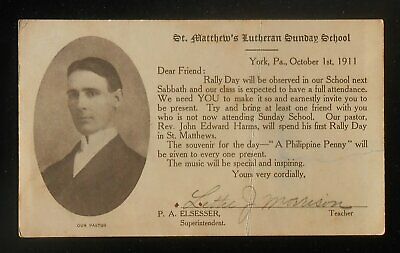 St. Matthew's Lutheran Sunday School
York, Pa., October 1st, 1911
Dear Friend:
Rally Day will be observed in our School next
Sabbath and our class is expected to have a full attendance.
We need YOU to make it so and earnestly invite you to
be present. Try and bring at least one friend with you
who is not now attending Sunday School. Our pastor,
Rev. John Edward Harms, will spend his first Rally Day
in St. Matthews.
The souvenir for the day—"A Philippine Penny" will
be given to every one present.
The music will be special and inspiring.
Yours very cordially,
J Morrison
P. A. ELSESSER, Teacher
Superintendent.
OUR PASTOR